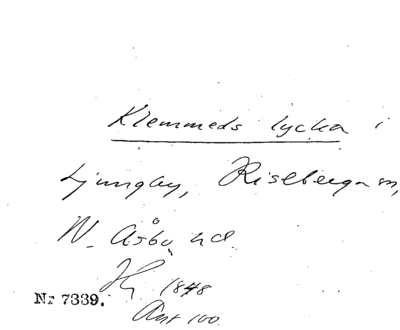 Klemmeds lycka i
Ljungby, Riseberga sn,
N. Åsbo hd.
1848
Nr 7339.
Ant 100